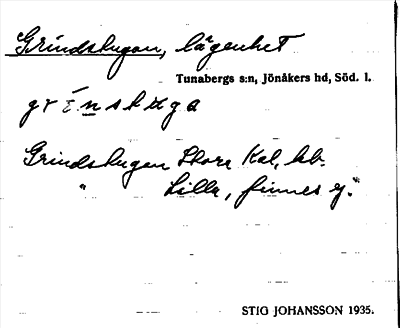 Grindstugan, lägenhet
Tunabergs s:n, Jönåkers hd, Söd. l.
grínstuga
Grindstugan Stora Kal, kb.
" Lilla, finnes ej."
STIG JOHANSSON 1935.